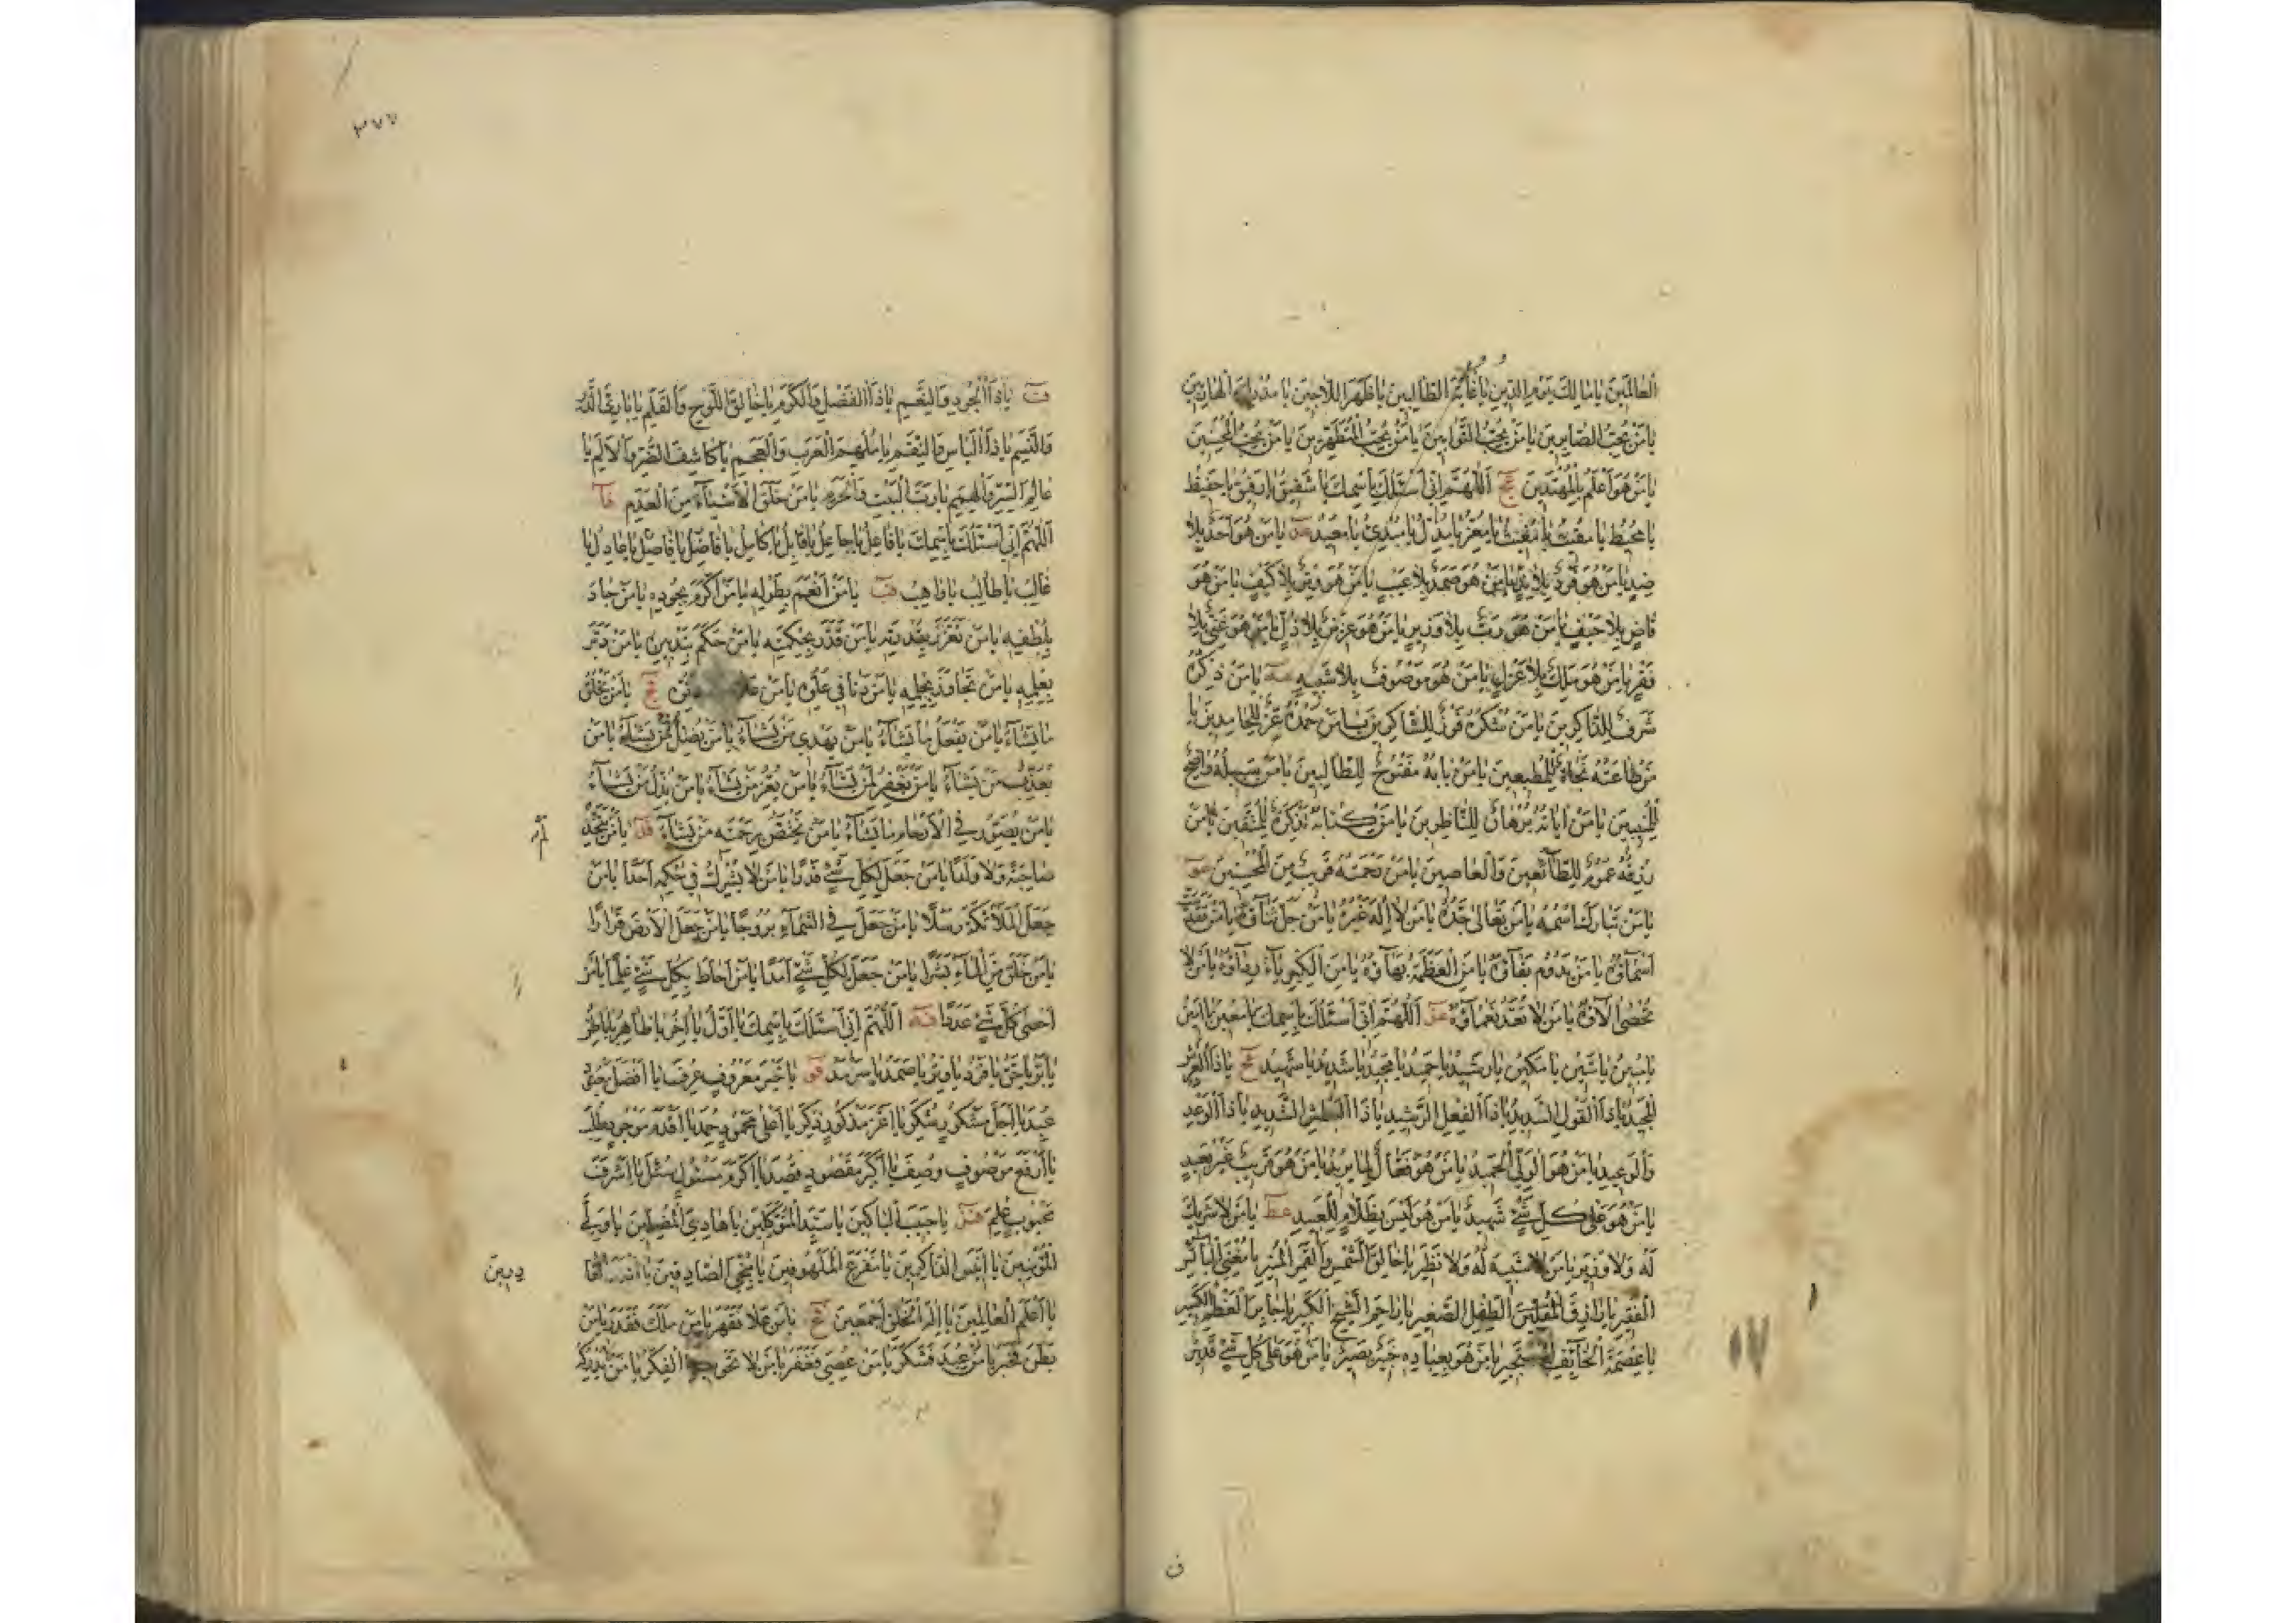 العالمين يا مالك يوم الدين يا غاية الطالبين يا ظهر اللاجين يا مدرك الهاربين
يا من يحب الصابرين يا من يحب التوابين يا من يحب المتطهرين يا من يحب المحسنين
يا من هو اعلم بالمهتدين عج اللهم اني اسئلك باسمك يا شفيق يا رفيق يا حفيظ
يا محيط يا مقيت يا مغيث يا معز يا مذل يا مبدئ يا معيد عد يا من هو احد بلا
ضد يا من هو فرد بلا ند يا من هو صمد بلا عيب يا من هو وتر بلا كيف يا من هو
قاض بلا حيف يا من هو رب بلا وزير يا من هو عزيز بلا ذل يا من هو غني بلا
فقر يا من هو ملك بلا عزل يا من هو موصوف بلا شبيه عه يا من ذكره
شرف للذاكرين يا من شكره فوز للشاكرين يا من حمده عز للحامدين يا
من طاعته نجاة للمطيعين يا من بابه مفتوح للطالبين يا من سبيله واضح
للمنيبين يا من اياته برهان للناظرين يا من كتابه تذكرة للمتقين يا من
رزقه عموم للطائعين والعاصين يا من رحمته قريب من المحسنين عو
يا من تبارك اسمه يا من تعالى جده يا من لا اله غيره يا من جل ثناؤه يا من تقدست
اسماؤه يا من يدوم بقاؤه يا من العظمة بهاؤه يا من الكبرياء رداؤه يا من لا
تحصى الاؤه يا من لا تعد نعماؤه عز اللهم اني اسئلك باسمك يا معين يا امين
يا مبين يا متين يا مكين يا رشيد يا حميد يا مجيد يا شديد يا شهيد عح يا ذا العرش
المجيد يا ذا القول السديد يا ذا الفعل الرشيد يا ذا البطش الشديد يا ذا الوعد
والوعيد يا من هو الولي الحميد يا من هو فعال لما يريد يا من هو قريب غير بعيد
يا من هو على كل شئ شهيد يا من هو ليس بظلام للعبيد عط يا من لا شريك
له ولا وزير يا من لا شبيه له ولا نظير يا خالق الشمس والقمر المنير يا مغني البائس
الفقير يا رازق الطفل الصغير يا راحم الشيخ الكبير يا جابر العظم الكسير
يا عصمة الخائف المستجير يا من هو بعباده خبير بصير يا من هو على كل شئ قدير
١٧
ف
٣٧٧
ف يا ذا الجود والنعم يا ذا الفضل والكرم يا خالق اللوح والقلم يا بارئ الذر
والنسم يا ذا الباس والنقم يا ملهم العرب والعجم يا كاشف الضر والالم يا
عالم السر والهمم يا رب البيت والحرم يا من خلق الاشياء من العدم فا
اللهم اني اسئلك باسمك يا فاعل يا جاعل يا قابل يا كامل يا فاضل يا فاصل يا عادل يا
غالب يا طالب يا واهب فب يا من انعم بطوله يا من اكرم بجوده يا من جاد
بلطفه يا من تعزز بقدرته يا من قدر بحكمته يا من حكم بتدبيره يا من دبر
بعلمه يا من تجاوز بحلمه يا من دنا في علوه يا من علا فج يا من يخلق
ما يشاء يا من يفعل ما يشاء يا من يهدي من يشاء يا من يضل من يشاء يا من
يعذب من يشاء يا من يغفر لمن يشاء يا من يعز من يشاء يا من يذل من يشاء
يا من يصور في الارحام ما يشاء يا من يختص برحمته من يشاء فد يا من لم يتخذ
صاحبة ولا ولدا يا من جعل لكل شئ قدرا يا من لا يشرك في حكمه احدا يا من
جعل الملائكة رسلا يا من جعل في السماء بروجا يا من جعل الارض قرارا
يا من خلق من الماء بشرا يا من جعل لكل شئ امدا يا من احاط بكل شئ علما يا من
احصى كل شئ عددا فه اللهم اني اسئلك باسمك يا اول يا اخر يا ظاهر يا باطن
يا بر يا حق يا فرد يا وتر يا صمد يا سرمد فو يا خير معروف عرف يا افضل معبود
عبد يا اجل مشكور شكر يا اعز مذكور ذكر يا اعلى محمود حمد يا اقدم موجود طلب
يا ارفع موصوف وصف يا اكبر مقصود قصد يا اكرم مسئول سئل يا اشرف
محبوب علم فز يا حبيب الباكين يا سيد المتوكلين يا هادي المضلين يا ولي
المؤمنين يا انيس الذاكرين يا مفزع الملهوفين يا منجي الصادقين يا اقدر القا
درين
يا اعلم العالمين يا اله الخلق اجمعين فح يا من علا فقهر يا من ملك فقدر يا من
بطن فخبر يا من عبد فشكر يا من عصي فغفر يا من لا تحويه الفكر يا من لا يدركه